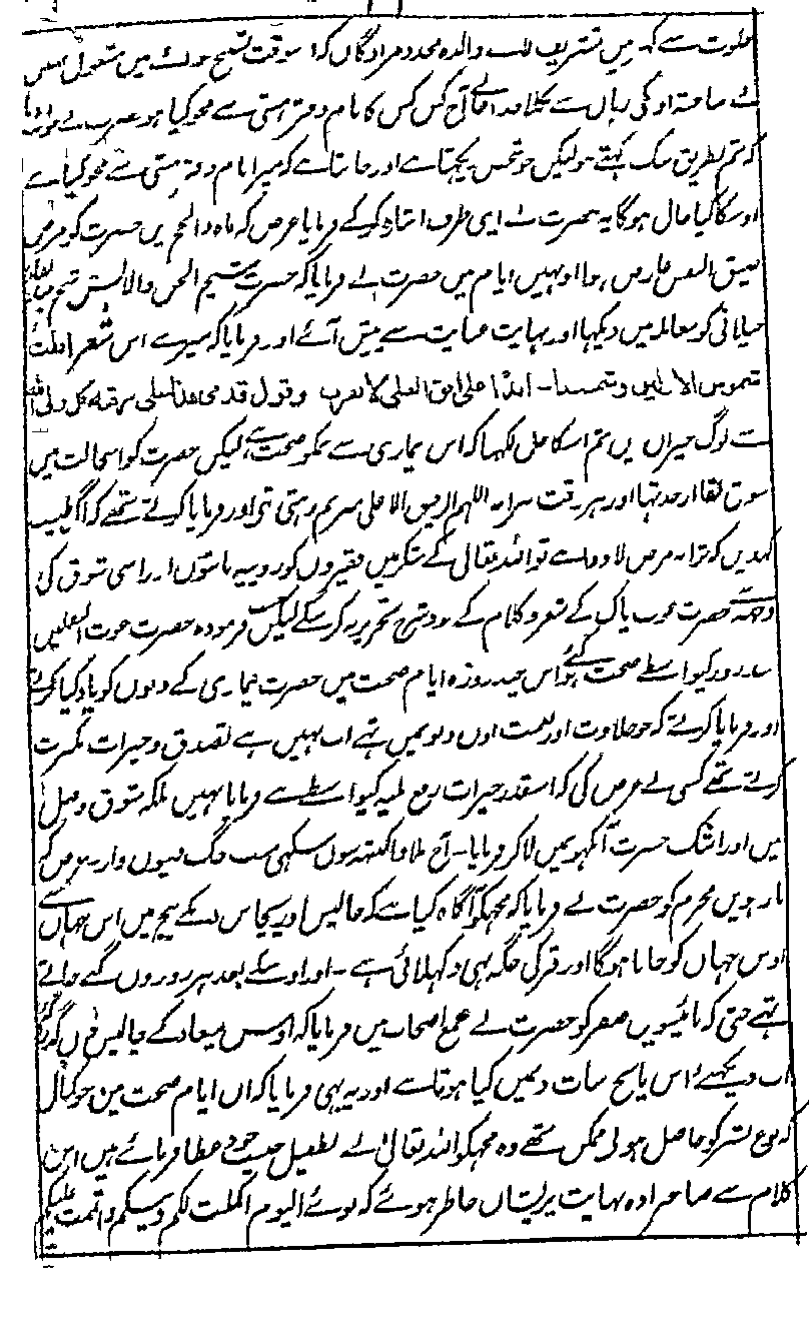 خلوت سے کہ میں تشریف والدہ مخدومزادگان کہ اوسوقت تسبیح میں مشغول تھیں
بے ساختہ اونکی زبان سے نکلا خدا جانے آج کس کس کا نام دفتر ہستی سے محو کیا ہو حضرت نے فرمایا
کہ تم بطریق شک کہتے ہو لیکن جو شخص دیکھتا ہے اور جانتا ہے کہ میرا نام دفتر ہستی سے محو کیا ہے
اوسکا کیا حال ہوگا یہ حضرت نے اپنی طرف اشارہ کرکے فرمایا غرض کہ ماہ ذالحجہ میں حضرت کو مرض
ضیق النفس عارض ہوا اونہیں ایام میں حضرت نے فرمایا کہ حضرت شیخ الجن والانس شیخ عبدالقادر
جیلانی کو معاملہ میں دیکھا اور نہایت عنایت سے پیش آئے اور فرمایا کہ میرے اس شعر افلت
شموس الاولین وشمسنا - ابدا علی افق العلی لا تغرب وقول قدمی ھذا علی رقبۃ کل ولی اللہ
لوگ حیران ہیں تم اسکا حل لکھنا کہ اس بیماری سے تمکو صحت ہے لیکن حضرت کو اسحالت میں
شوق لقا از حد تھا اور ہر وقت اللہم الرفیق الاعلی رہتی تھی اور فرمایا کرتے تھے کہ اگر طبیب
کہدیں کہ تیرا مرض لا دوا ہے تو اللہ تعالی کے شکر میں فقیروں کو روپیہ بانٹوں اور اسی شوق کی
وجہ سے حضرت محبوب پاک کے شعر و کلام کے شرح تحریر نہ کر سکے لیکن فرمودہ حضرت غوث الثقلین
چند روز کیواسطے صحت ہوئی اس چند روزہ ایام صحت میں حضرت بیماری کے دنوں کو یاد کیا کرتے
اور فرمایا کرتے کہ جو حلاوت اور نعمت اون دنوں میں تھے اب نہیں ہے تصدق و خیرات بکثرت
کرتے تھے کسی نے عرض کی کہ اسقدر خیرات رفع بلیہ کیواسطے ہے فرمایا نہیں بلکہ شوق وصل
میں اور اشک حسرت آنکھوں میں لا کر فرمایا - آج ملاوا کنتھ سوں سکھی سب جگ دیوں وار - غرض کہ
بارہویں محرم کو حضرت نے فرمایا کہ مجھکو آگاہ کیا ہے کہ چالیس اور پچاس دن کے بیچ میں اس جہاں سے
اوس جہاں کو جانا ہوگا اور قبر کی جگہ بھی دکھلائی ہے - اور اوسکے بعد ہر روز دن گنے جاتے
تھے حتی کہ بائیسویں صفر کو حضرت نے مجمع اصحاب میں فرمایا کہ اوس میعاد کے چالیس دن گذر گئے
اب دیکھئے اس پانچ سات دن میں کیا ہوتا ہے اور یہ بھی فرمایا کہ ان ایام صحت میں جو کمال
کہ نوع بشر کو حاصل ہونے ممکن تھے وہ مجھکو اللہ تعالی نے بطفیل حبیب خود عطا فرمائے ہیں اس
کلام سے صاحبزادہ نہایت پریشان خاطر ہوئے کہ بوئے الیوم اکملت لکم دینکم و اتممت علیکم